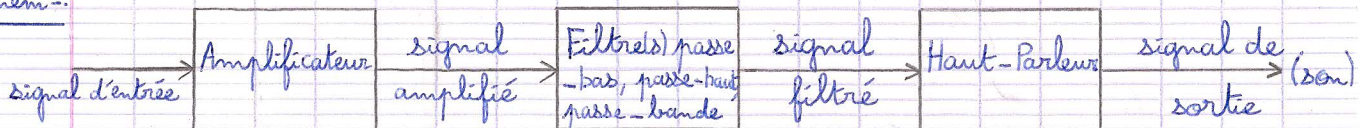 signal d'entrée
Amplificateur
signal
amplifié
Filtre(s) passe
-bas, passe-haut,
passe-bande
signal
filtré
Haut-Parleur
signal de
sortie
(son)